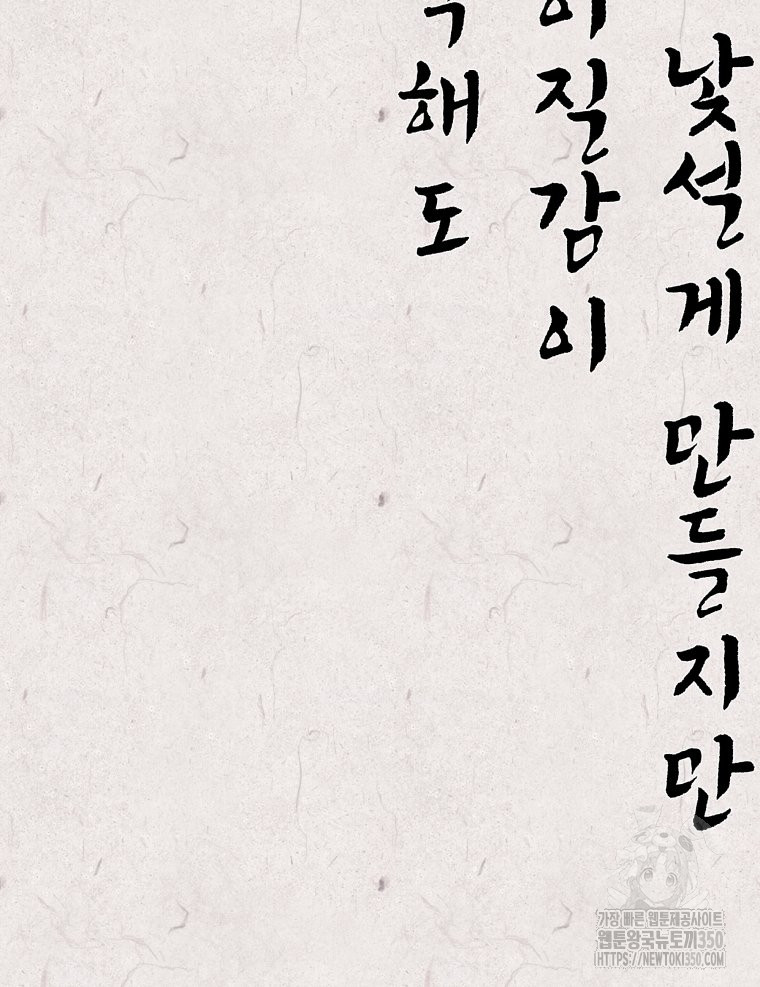 낯설게 만들지만
이질감이
해도
가장 빠른 웹툰제공사이트
웹툰왕국뉴토끼350
HTTPS://NEWTOKI350.COM